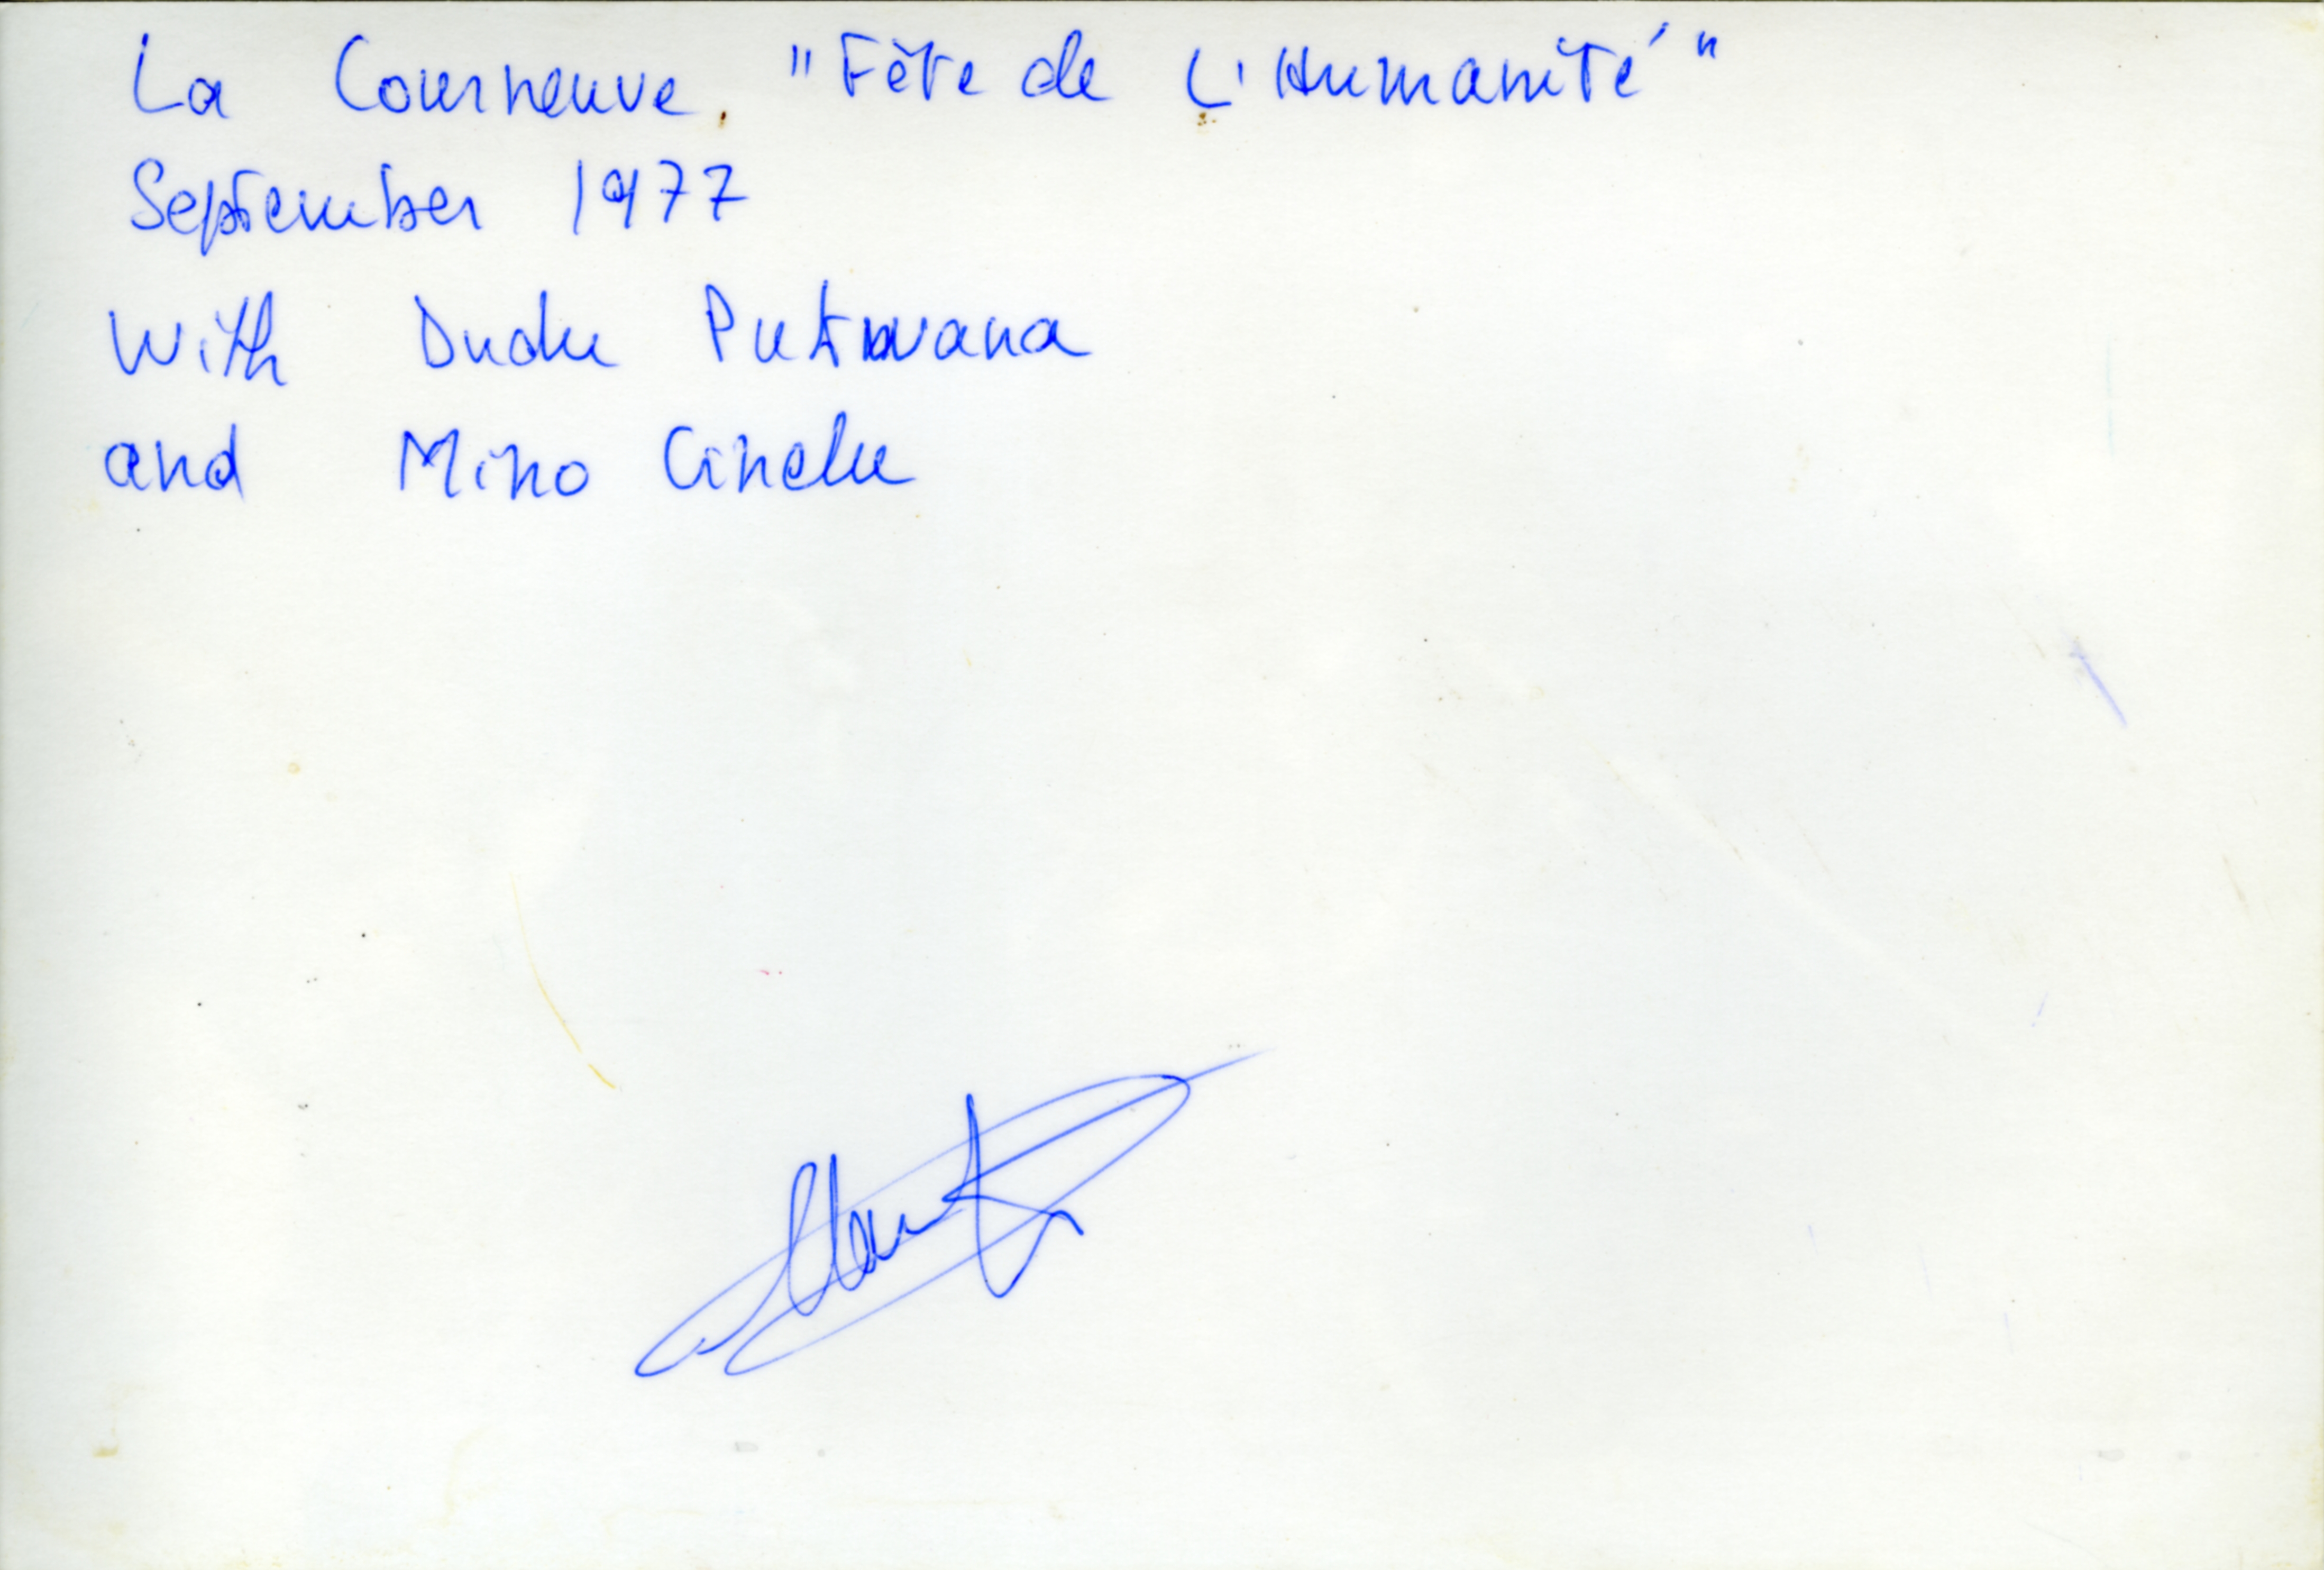 La Courneuve. "Fête de L'Humanité"
September 1977
With Dudu Pukwana
and Mino Cinelu